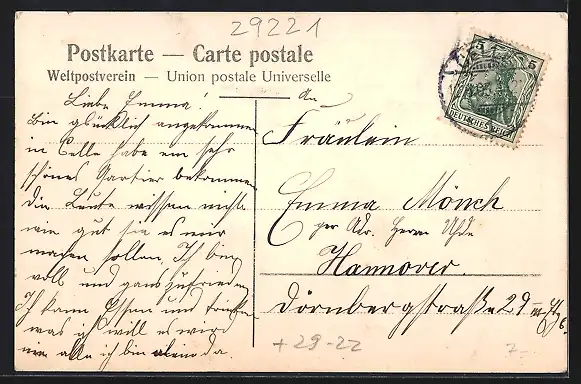 29221
Postkarte — Carte postale
Weltpostverein — Union postale Universelle
Liebe Emma!
Bin glücklich angekommen
in Celle habe ein sehr
schönes Quartier bekommen
die Leute wissen nicht
wie gut sie es mir
machen sollen, Ich bin
voll und ganz zufrieden
Ich kann Essen und trinken
was ich will es wird
mir alle ich bin allein da.
An
Fräulein
Emma Mönch
per Adr. Herrn Uhde
Hannover.
Dörnbergstraße 29
+29-22
7.-
5 5
DEUTSCHES REICH